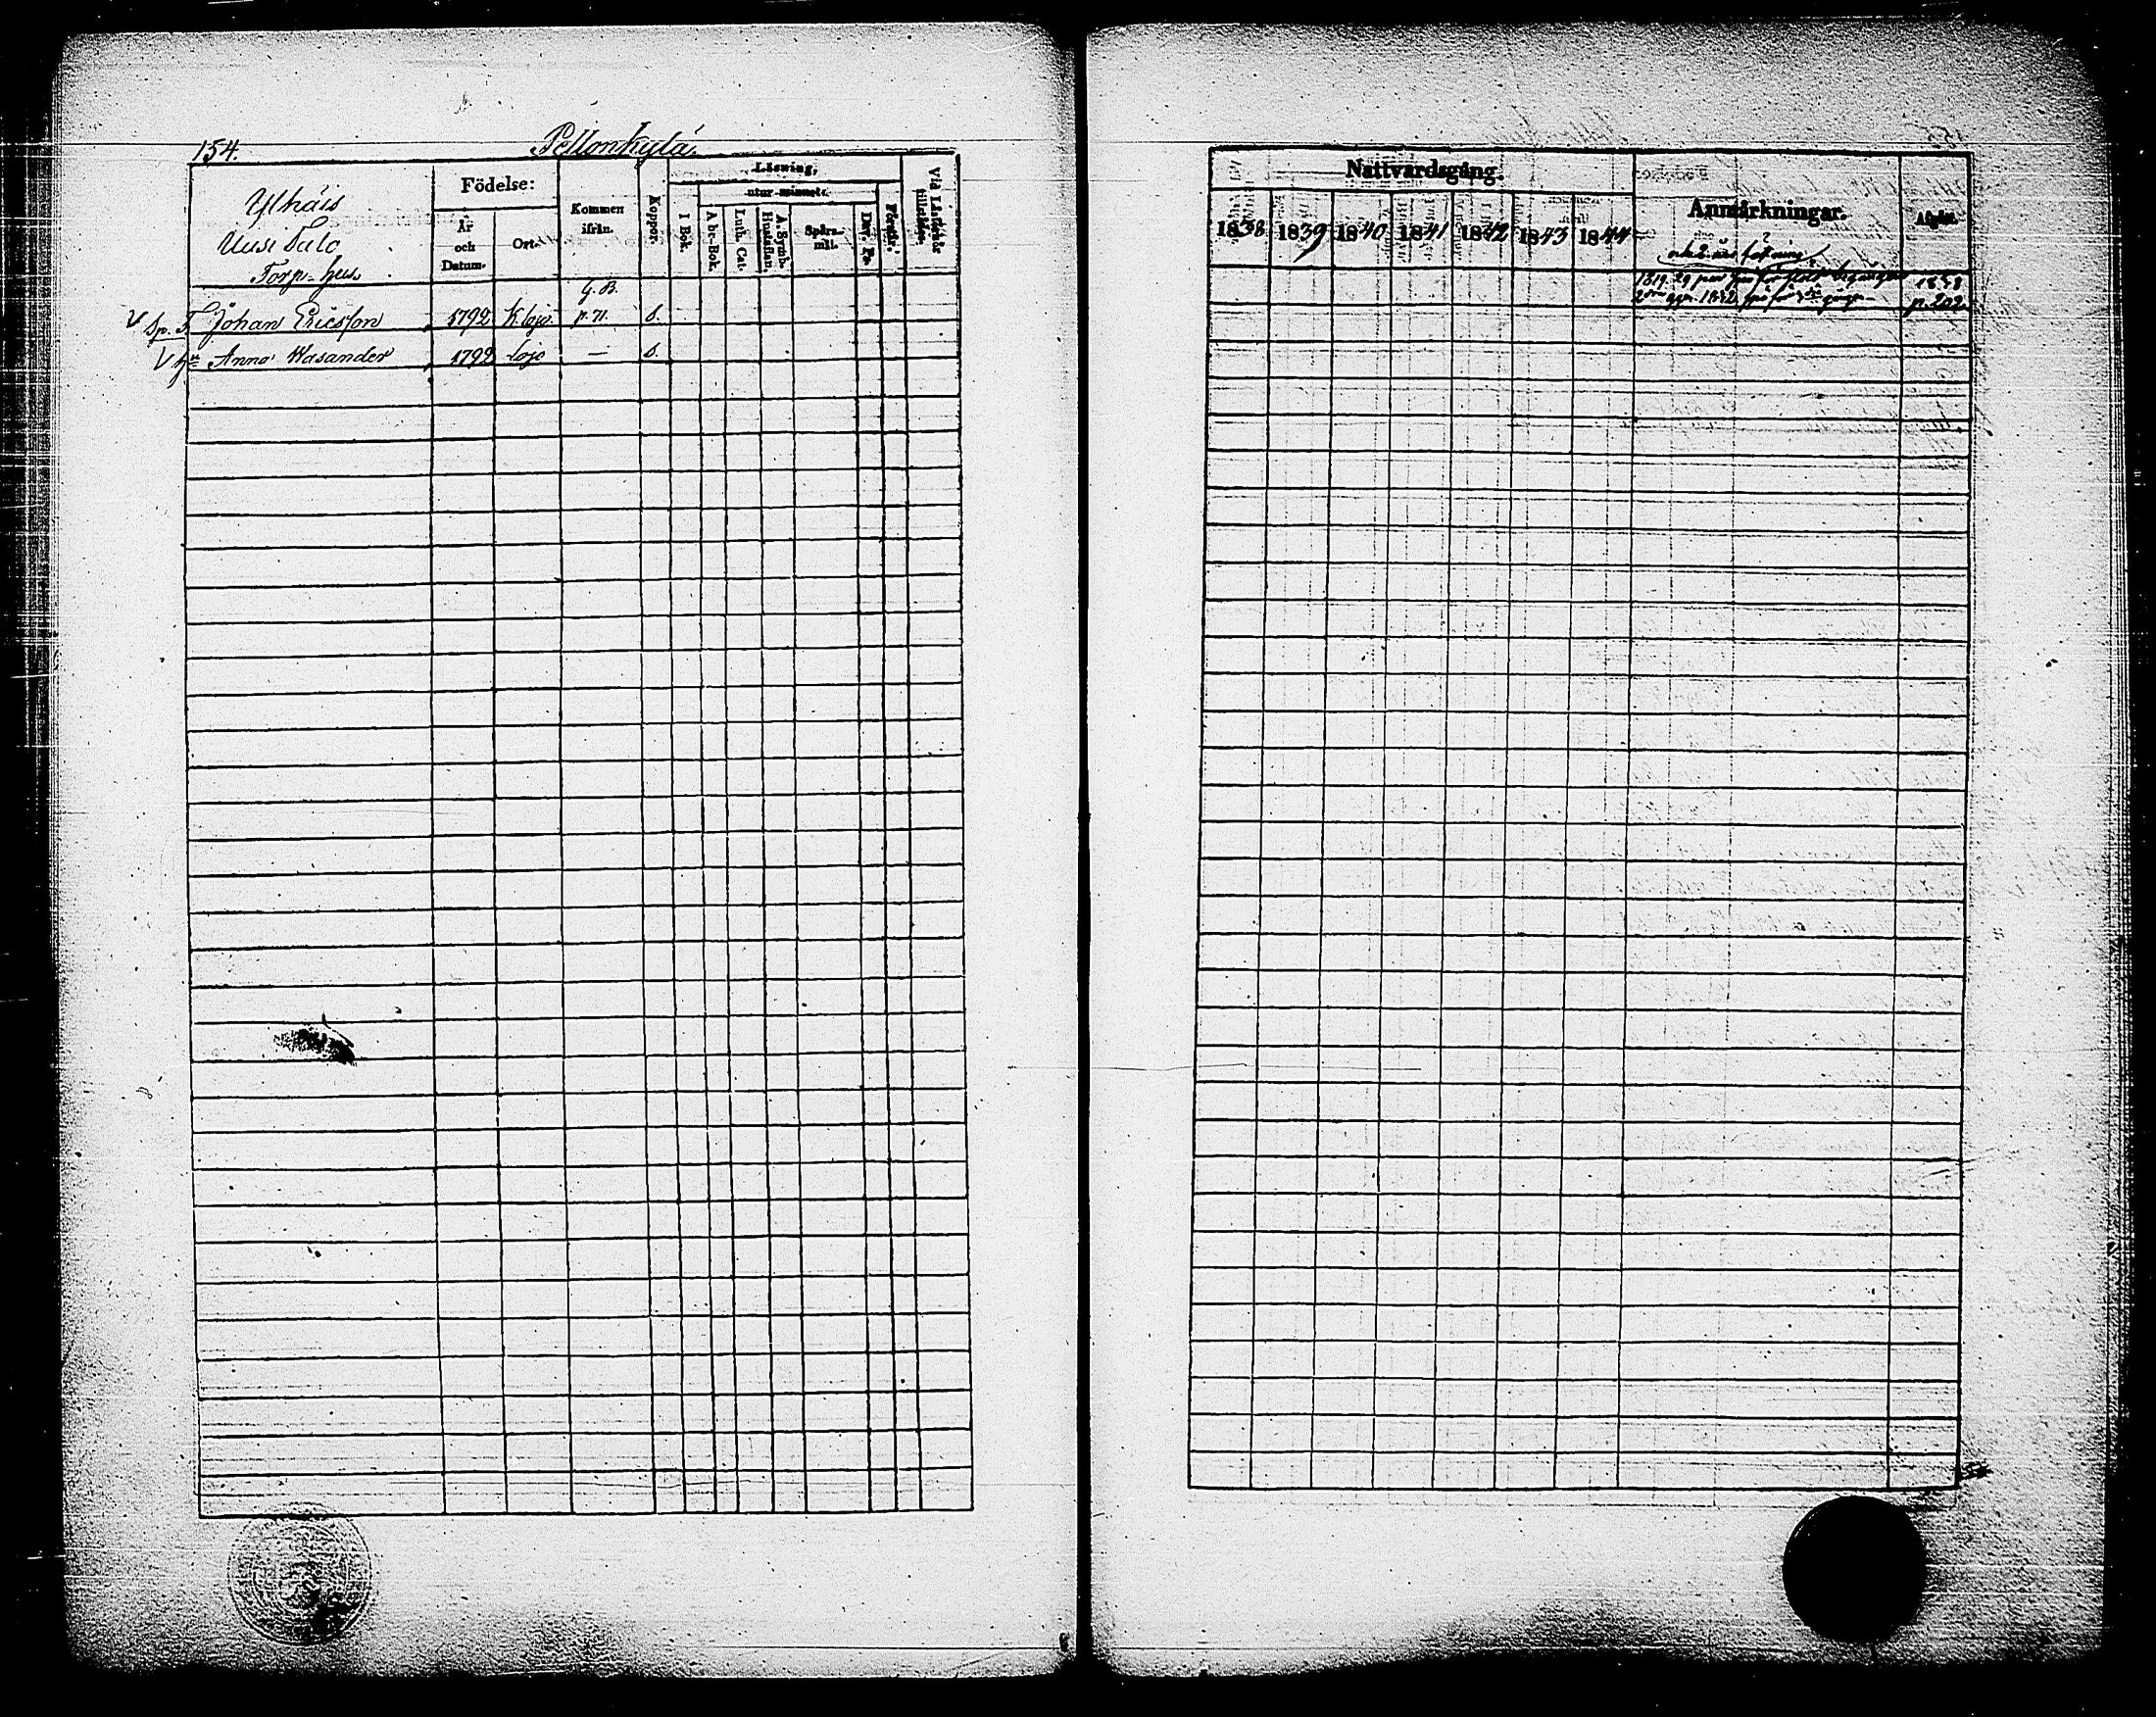 154. Pellonkylä.
Ylhäis
Uusi Talo
Torp-hus
Födelse:
År och Datum.
Ort.
Kommen ifrån.
Koppor.
Läsning,
utur minnet.
I Bok.
Abc-Bok.
Luth. Cat.
A. Symb. Hustaflan.
Spörs-mål.
Dav. Ps.
Förstår.
Via Läsförhör
G. B.
V Sp. T. Johan Ericsson 1792 K. Lojo. p. 71. S.
V h:n Anna Wasander 1792 Lojo — S.
Nattvardsgång.
1838 1839 1840 1841 1842 1843 1844
Anmärkningar.
Afgått.
1819. 29 för 1838
1832 för gången p. 202